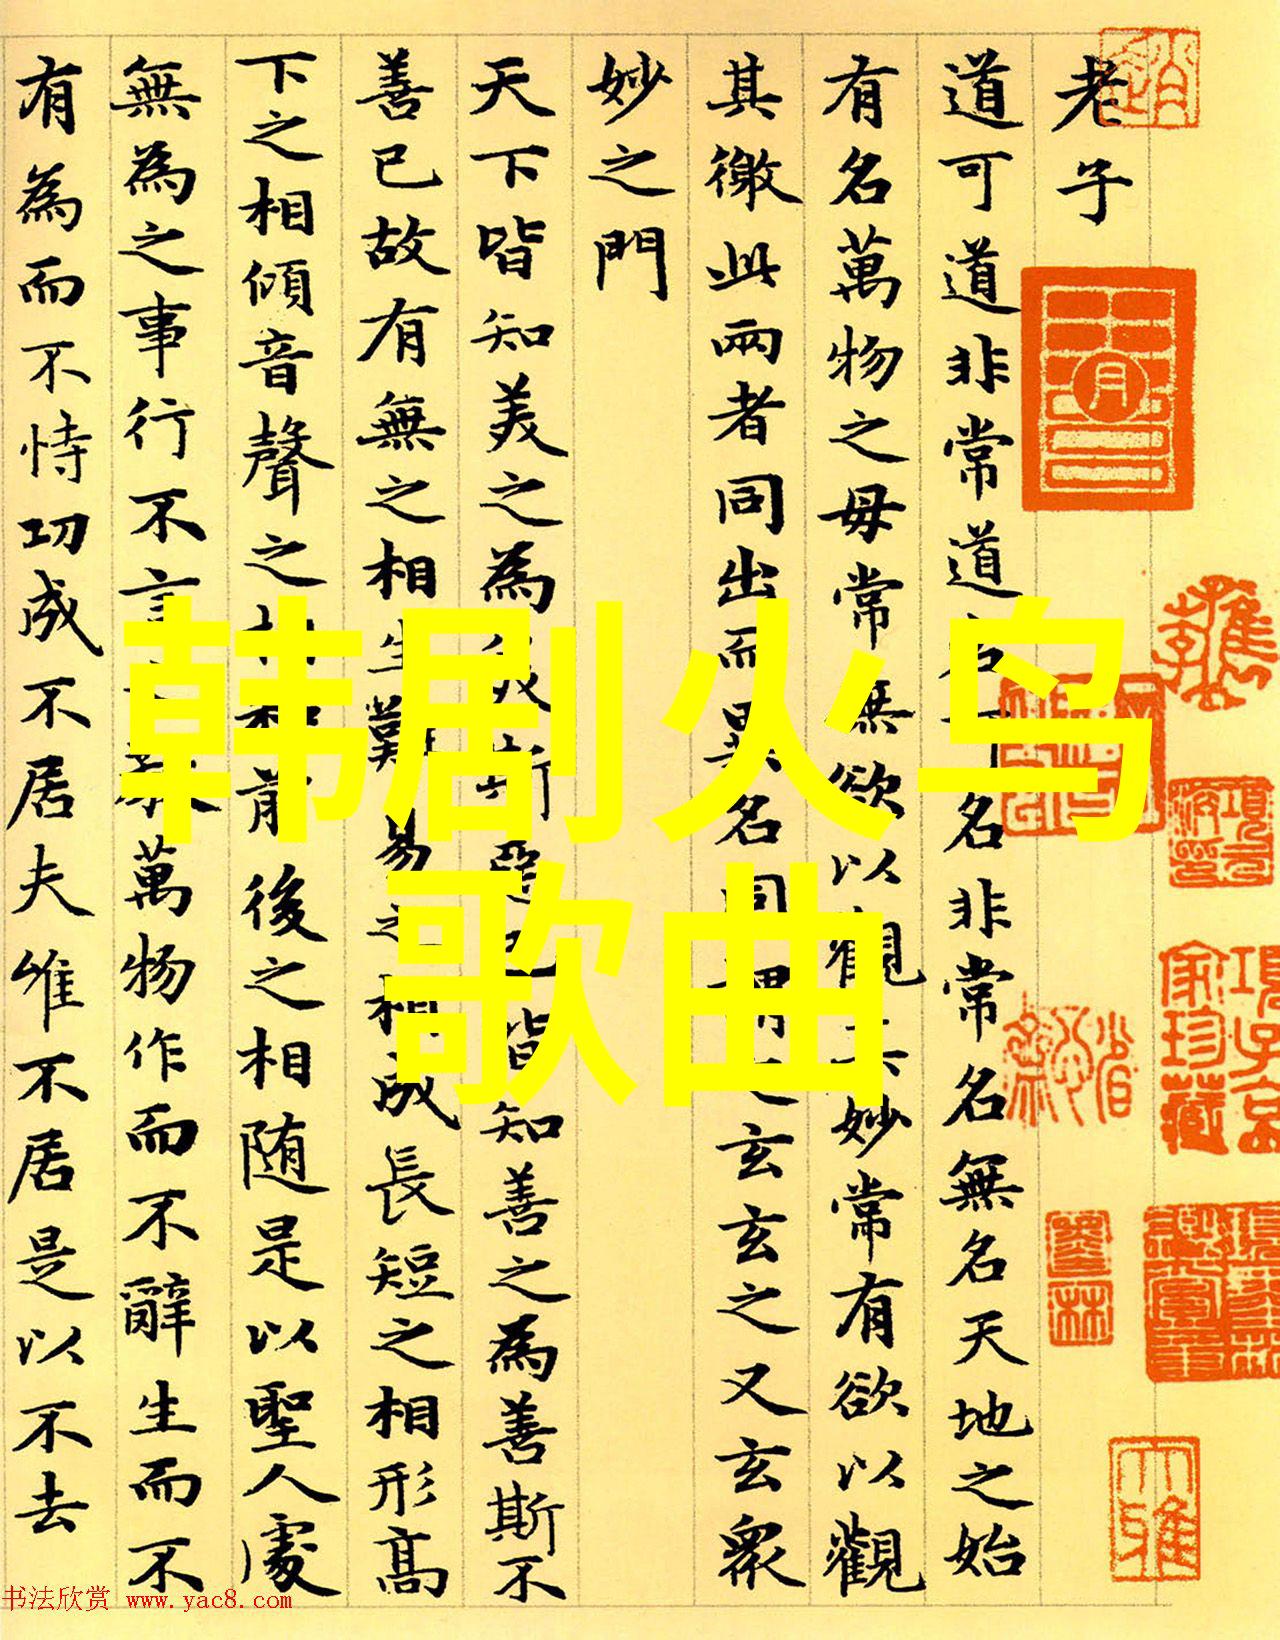 老子
道可道非常道名可名非常名無名天地之始
有名萬物之母常無欲以觀其妙常有欲以觀
其徼此兩者同出而異名同謂之玄玄之又玄衆
妙之門
天下皆知美之為美斯惡已皆知善之為善斯不
善已故有無之相生難易之相成長短之相形髙
下之相傾音聲之相和前後之相随是以聖人處
無為之事行不言之教萬物作而不辭生而不
有為而不恃功成不居夫唯不居是以不去
韩剧火鸟
歌曲
項子京
家珍藏
书法欣赏 www.yac8.com